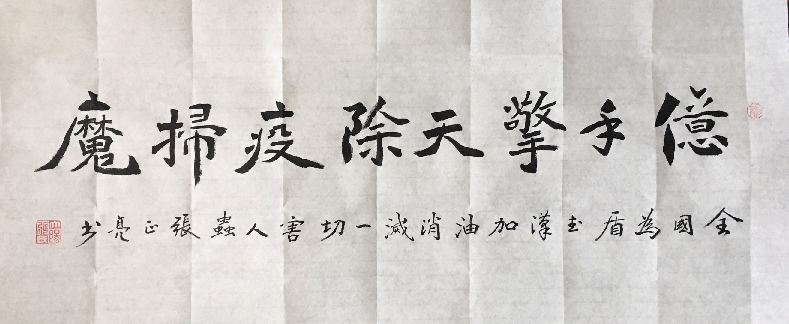 億手擎天除疫掃魔
全國為盾武漢加油消滅一切害人蟲張正亮书